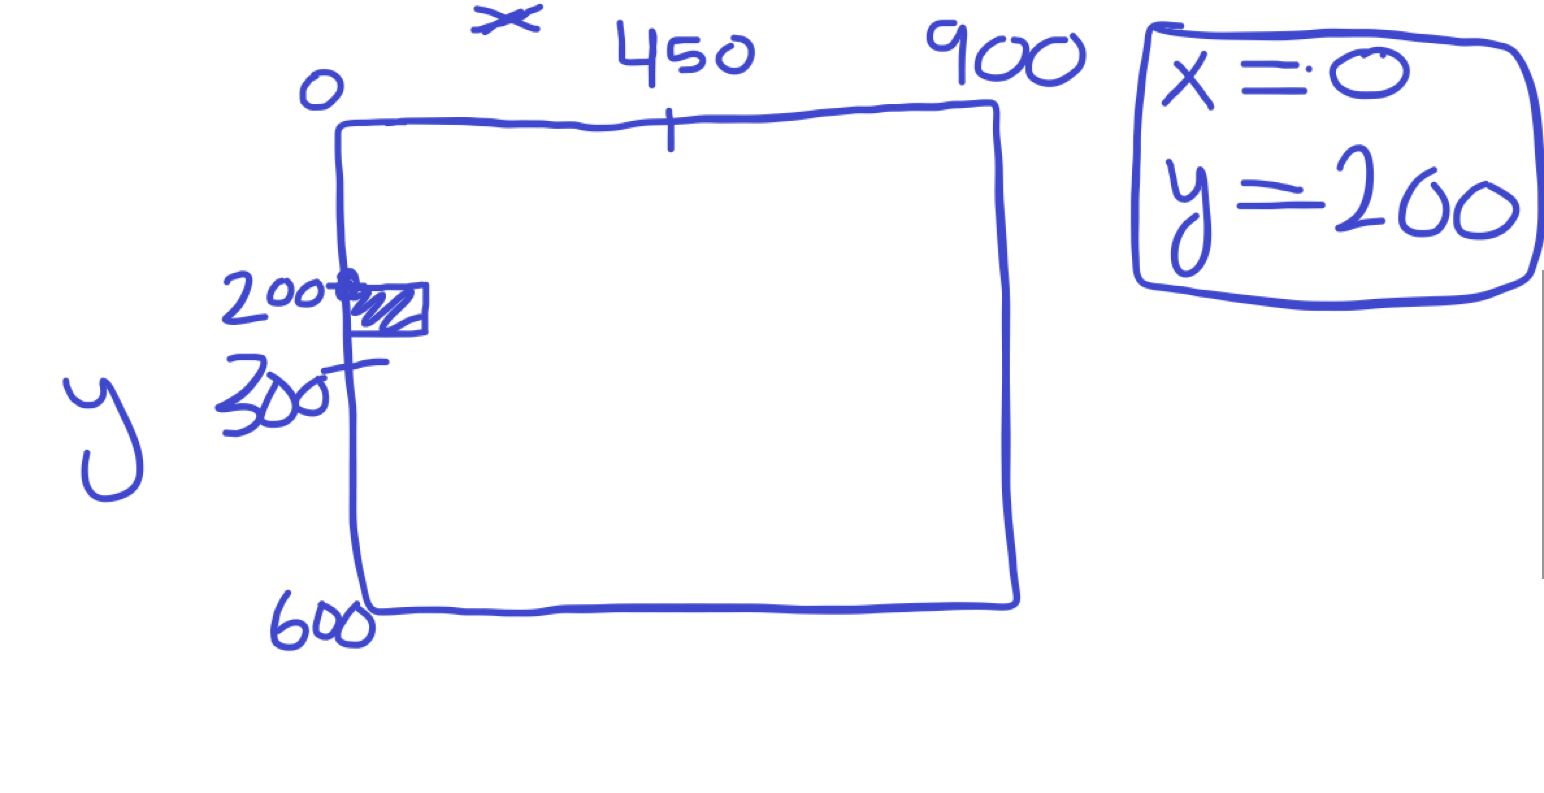 x
0 450 900
x = 0
y = 200
200
300
y
600